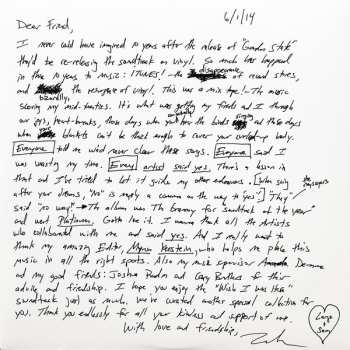 6/1/14
Dear Friend,
I never could have imagined 10 years after the release of "Garden State"
they'd be re-releasing the soundtrack on vinyl. So much has happened
in those 10 years to music: iTUNES! - the disappearance of record stores,
and bizarrely, the resurgence of vinyl. This was a mix tape! - The music
scoring my mid-twenties. It's what was getting my friends and I through
our joys, heart-breaks, those days when you for the birds singing and those days
when blankets can't be thick enough to cover your curled-up body.
Everyone told me we'd never clear these songs. Everyone said I
was wasting my time. Every artist said yes. There's a lesson in
that and I've tried to let it guide my other endeavors. [When going
after your dreams, "no" is simply a comma on the way to "yes"] "They" the naysayers
said "no way" → The album won "The Grammy for Soundtrack of the year"
and went Platinum. Gotta love it. I wanna thank all the Artists
who collaborated with me and said yes. And I really want to
thank my amazing Editor, Myron Kerstein, who helps me place this
music in all the right spots. Also my music supervisor Amanda Demme
and my good friends: Joshua Radin and Cary Brothers for their
advice and friendship. I hope you enjoy the "Wish I Was Here"
soundtrack just as much. We've curated another special collection for
you. Thank you endlessly for all your kindness and support of me.
With love and friendship,
Large
+
Sam